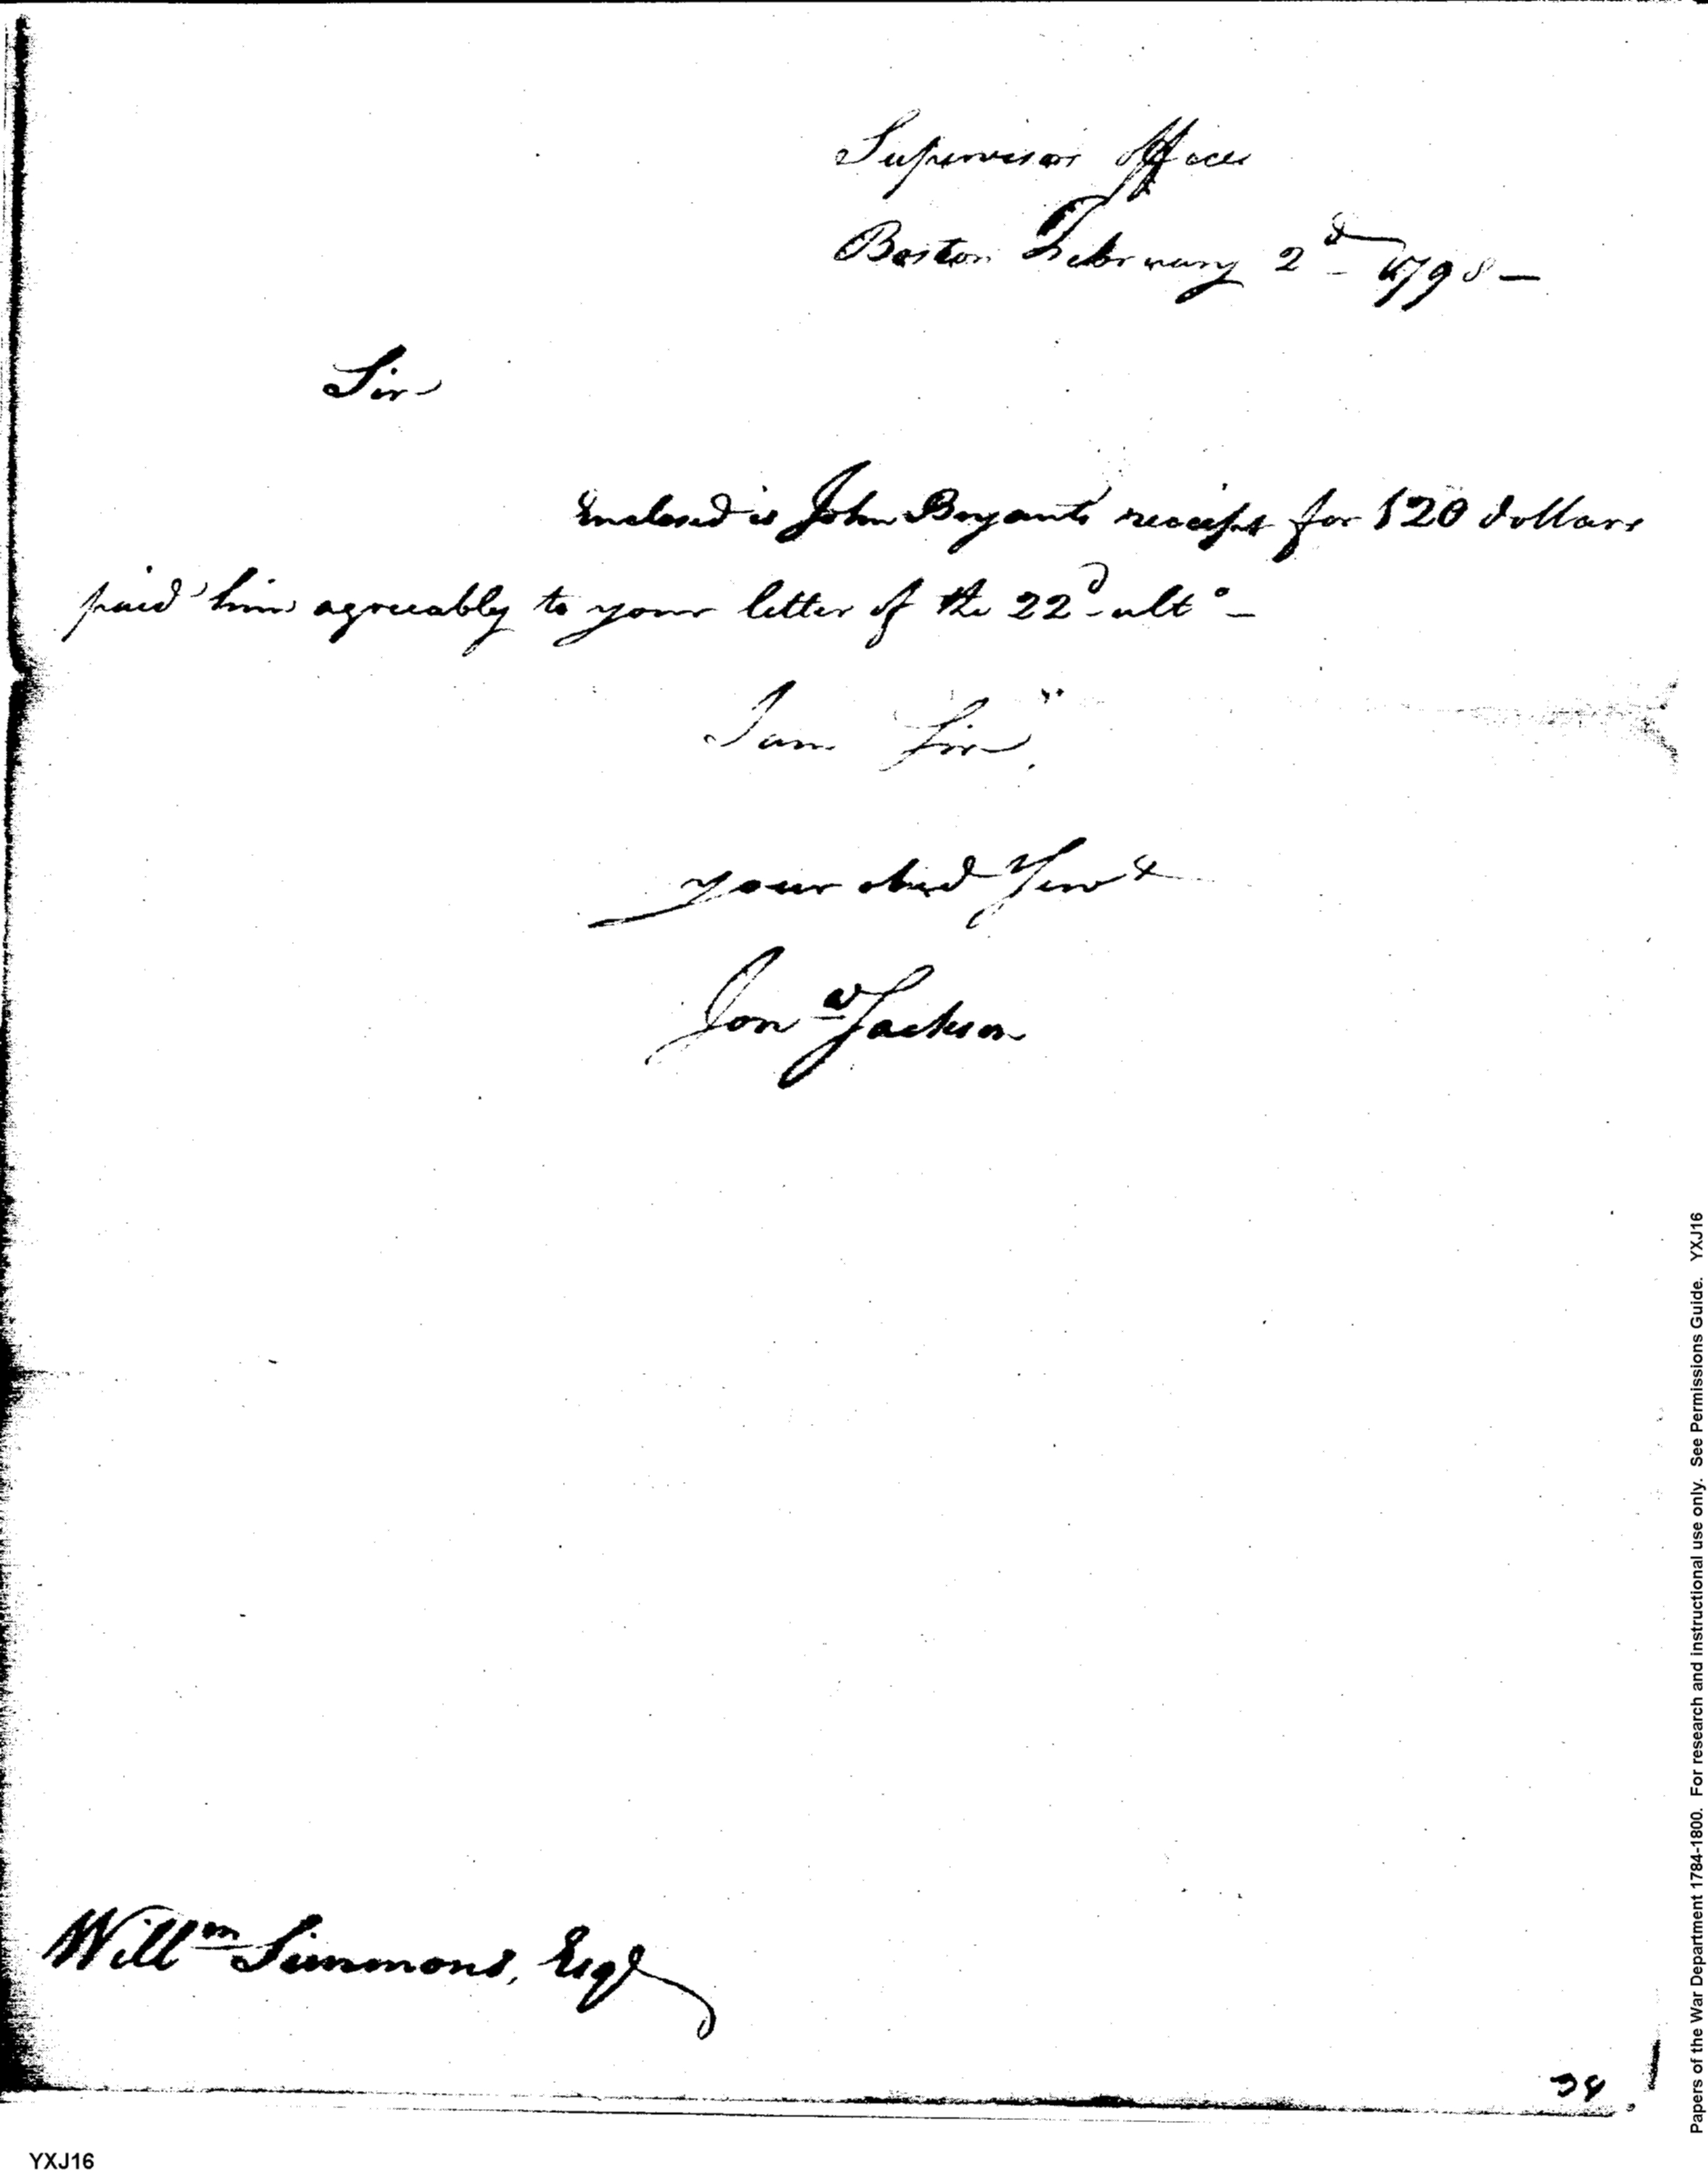 Supervisors Office
Boston February 2d 1798 —
Sir
Enclosed is John Bryants receipt for 120 dollars
paid him agreeably to your letter of the 22d ulto —
I am Sir
your obed Servt
Jona Jackson
Willm Simmons, Esqr
Papers of the War Department 1784-1800. For research and instructional use only. See Permissions Guide. YXJ16
YXJ16